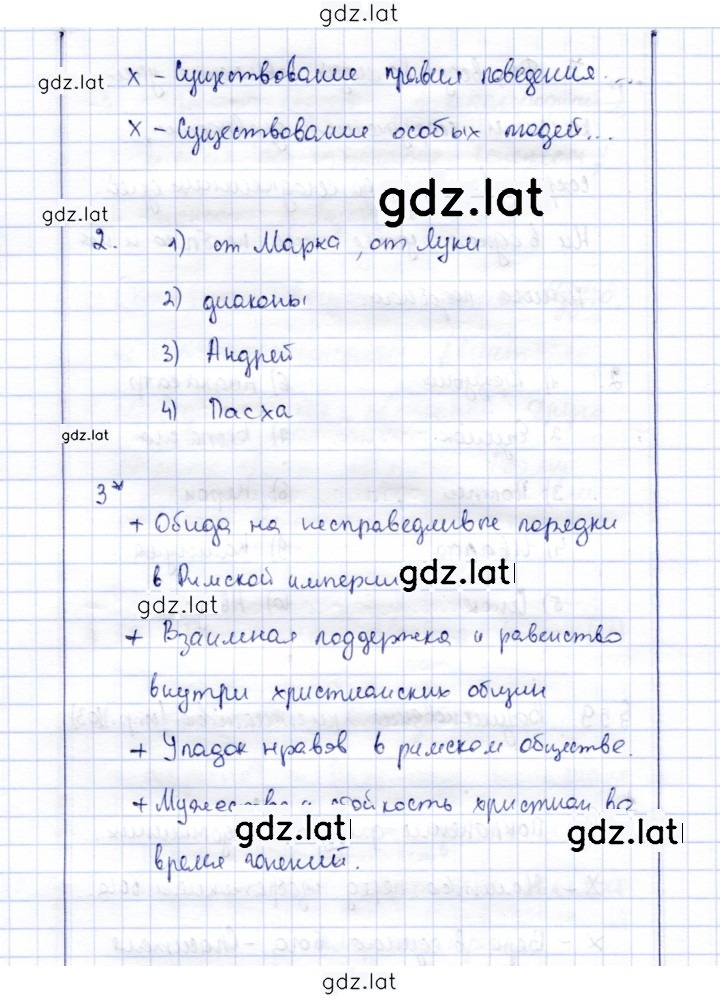 gdz.lat
х - Существование правил поведения...
gdz.lat
х - Существование особых людей...
gdz.lat
gdz.lat
2. 1) от Марка, от Луки
2) диаконы
3) Андрей
4) Пасха
gdz.lat
3*
+ Обида на несправедливые порядки
в Римской империи
gdz.lat
gdz.lat
+ Взаимная поддержка и равенство
внутри христианских общин
+ Упадок нравов в римском обществе.
+ Мужество и стойкость христиан во
gdz.lat
gdz.lat
время гонений.
gdz.lat